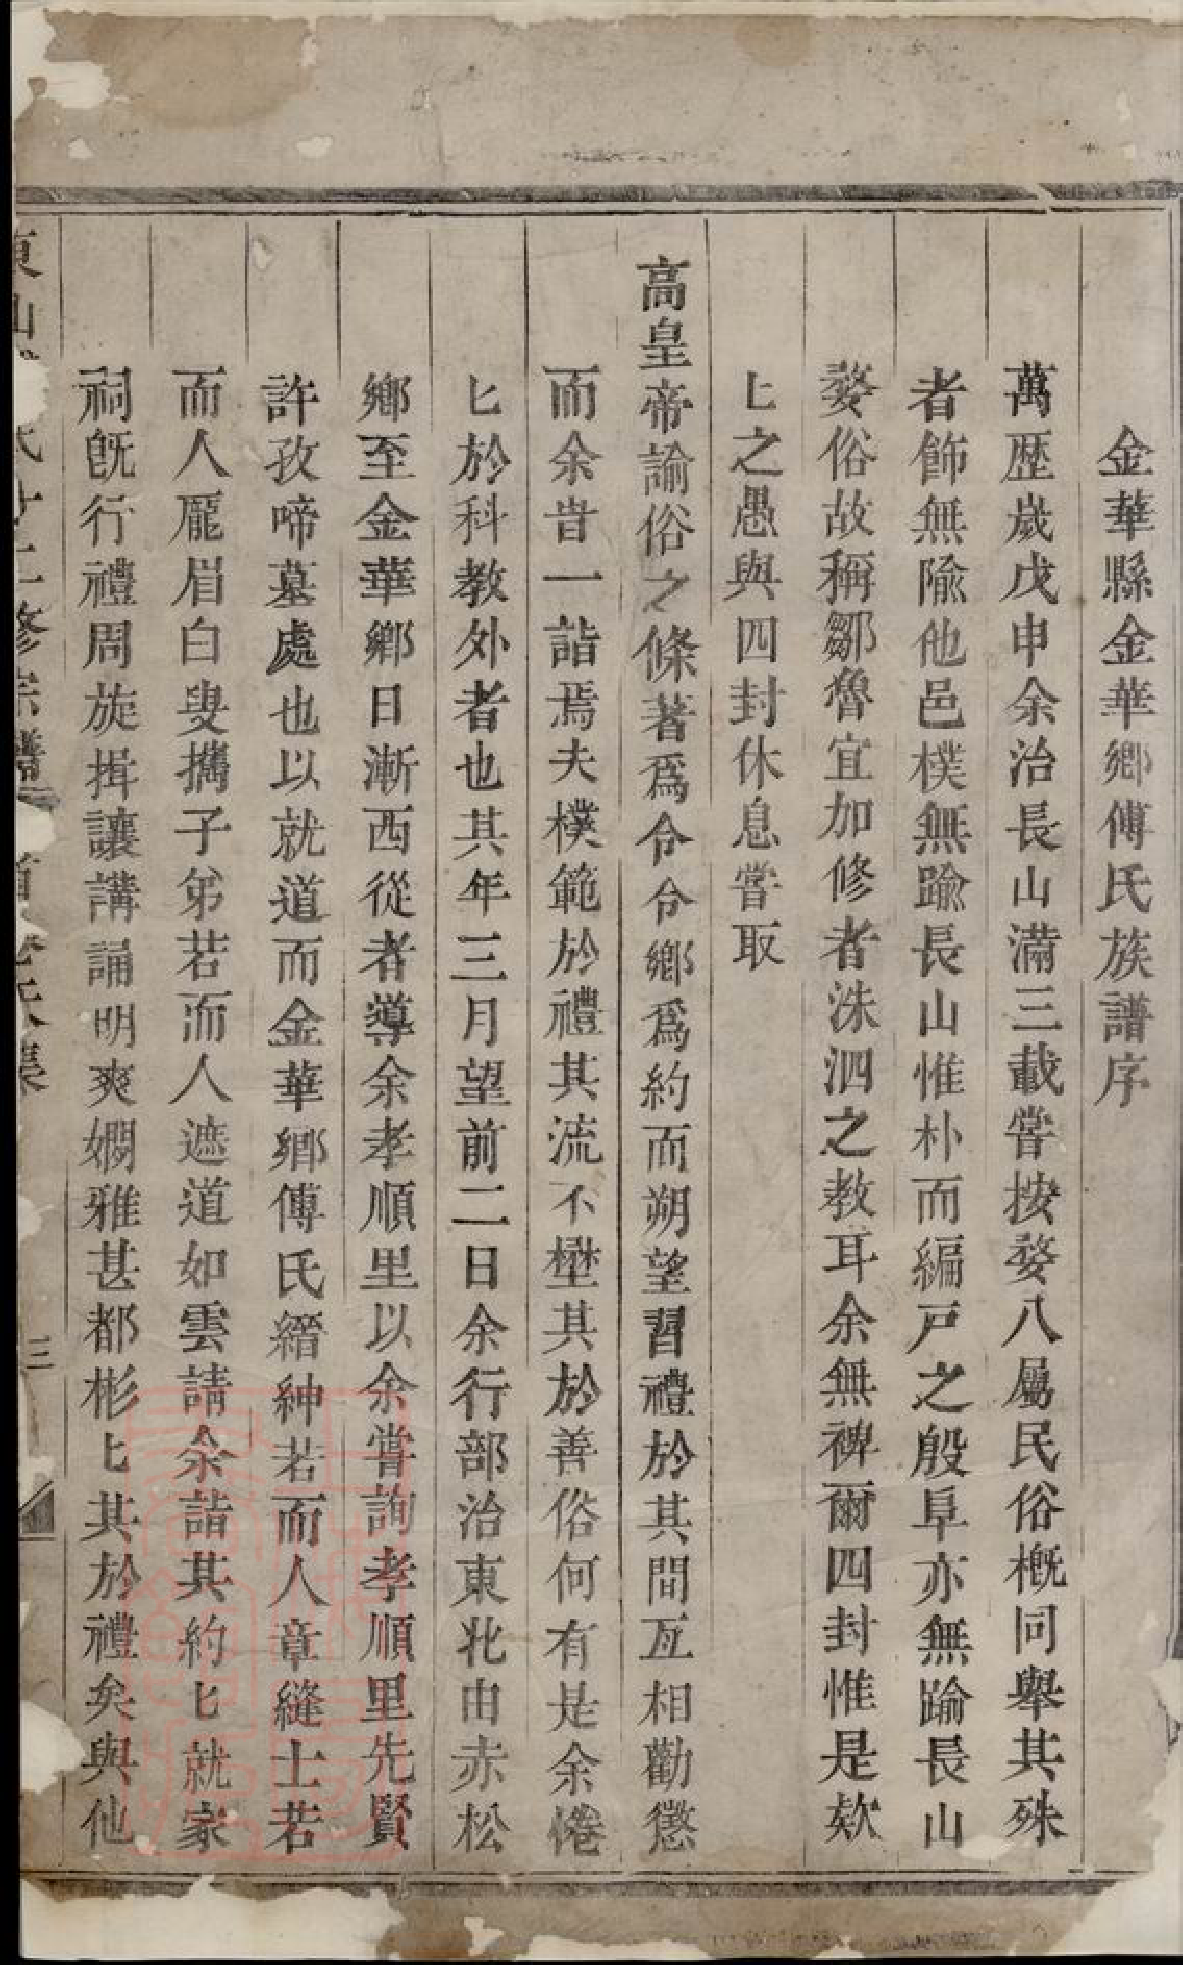 金華縣金華鄉傅氏族譜序
萬歷歲戊申余治長山滿三載嘗按婺八屬民俗槪同舉其殊
者飾無隃他邑樸無踰長山惟朴而編戸之殷阜亦無踰長山
婺俗故稱鄒魯宜加修者洙泗之教耳余無裨爾四封惟是欸
匕之愚與四封休息嘗取
高皇帝諭俗之條著爲令令鄉爲約而朔望習禮於其間互相勸懲
而余旹一詣焉夫樸範於禮其流不壄其於善俗何有是余惓
匕於科教外者也其年三月望前二日余行部治東北由赤松
鄉至金華鄉日漸西從者導余孝順里以余嘗詢孝順里先賢
許孜啼墓處也以就道而金華鄉傅氏縉紳若而人章縫士若
而人龐眉白叟攜子弟若而人遮道如雲請余詣其約匕就家
祠旣行禮周旋揖讓講誦明爽嫺雅甚都彬匕其於禮矣與他
三